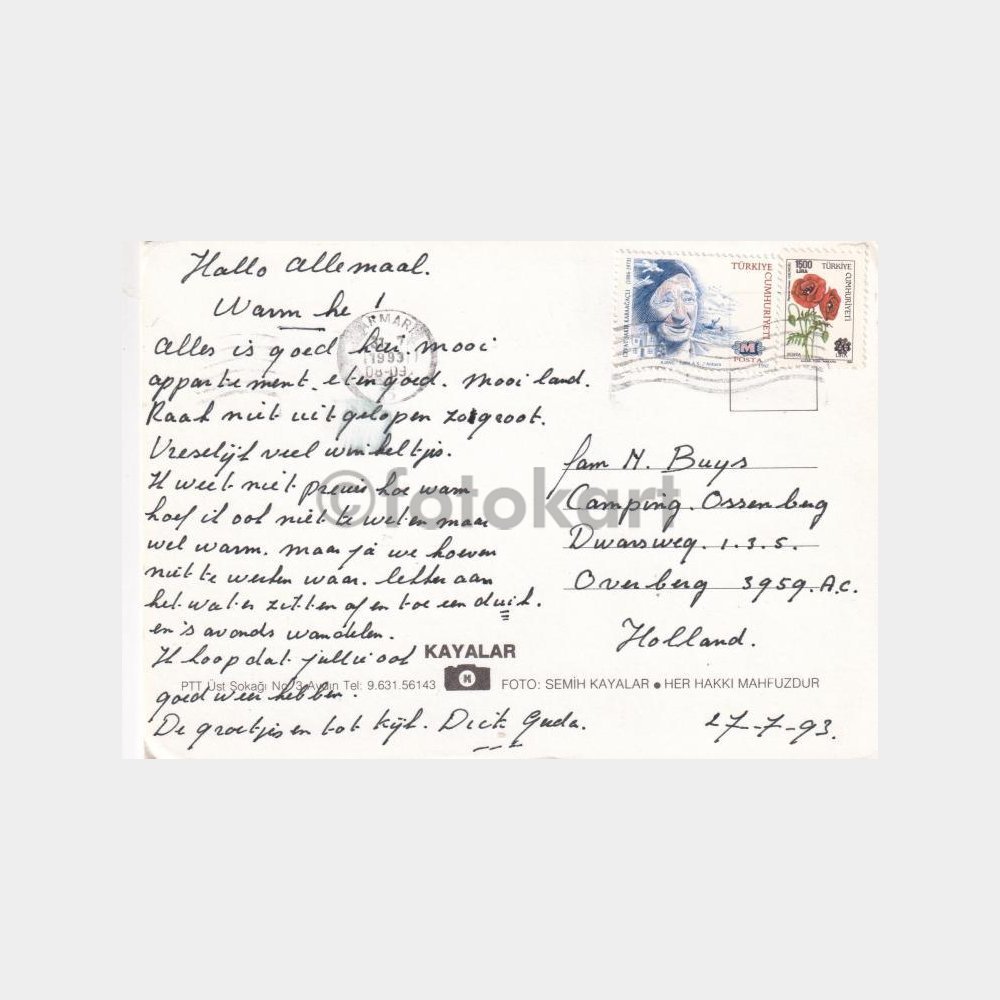 Hallo allemaal.
Warm hé!
alles is goed hier. mooi
appartement. eten goed. mooi land.
Raak niet uitgelopen zo groot.
Vreselijk veel winkeltjes.
Ik weet niet precies hoe warm
hoef ik ook niet te weten maar
wel warm. maar ja we hoeven
niet te werken waar. lekker aan
het water zitten af en toe een duik.
en 's avonds wandelen.
Ik hoop dat jullie ook
goed weer hebben.
De groetjes en tot kijk. Dick Guda.
27-7-93.
fam N. Buys
Camping. Ossenberg
Dwarsweg. 1.3.5.
Overberg 3959. A.C.
Holland.
KAYALAR
PTT Üst Sokağı No: 3 Aydın Tel: 9.631.56143
FOTO: SEMİH KAYALAR ● HER HAKKI MAHFUZDUR
TÜRKİYE CUMHURİYETİ
POSTA
1500 LİRA
TÜRKİYE CUMHURİYETİ
LİRA
MARMARİS
1993
08-09
©fotokart